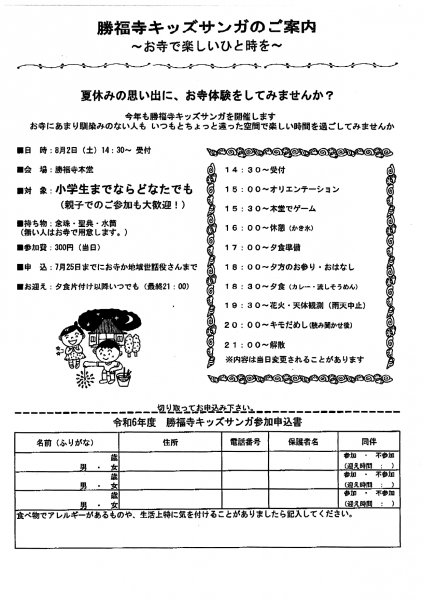 勝福寺キッズサンガのご案内
～お寺で楽しいひと時を～
夏休みの思い出に、お寺体験をしてみませんか？
今年も勝福寺キッズサンガを開催します
お寺にあまり馴染みのない人も いつもとちょっと違った空間で楽しい時間を過ごしてみませんか
■日 時：8月2日（土）14：30～ 受付
■会 場：勝福寺本堂
■対 象：小学生までならどなたでも
（親子でのご参加も大歓迎！）
■持ち物：念珠・聖典・水筒
（無い人はお寺で用意します。）
■参加費：300円（当日）
■申 込：7月25日までにお寺か地域世話役さんまで
■お迎え：夕食片付け以降いつでも（最終21：00）
14：30～受付
15：00～オリエンテーション
15：30～本堂でゲーム
16：00～休憩（かき氷）
17：00～夕食準備
18：00～夕方のお参り・おはなし
18：30～夕食（カレー・流しそうめん）
19：30～花火・天体観測（雨天中止）
20：00～キモだめし（読み聞かせ後）
21：00～解散
※内容は当日変更されることがあります
切り取ってお申込み下さい。
令和6年度 勝福寺キッズサンガ参加申込書
名前（ふりがな） 住所 電話番号 保護者名 同伴
歳 参加 ・ 不参加
男 ・ 女 （迎え時間 ： ）
歳 参加 ・ 不参加
男 ・ 女 （迎え時間 ： ）
歳 参加 ・ 不参加
男 ・ 女 （迎え時間 ： ）
食べ物でアレルギーがあるものや、生活上特に気を付けることがありましたら記入してください。